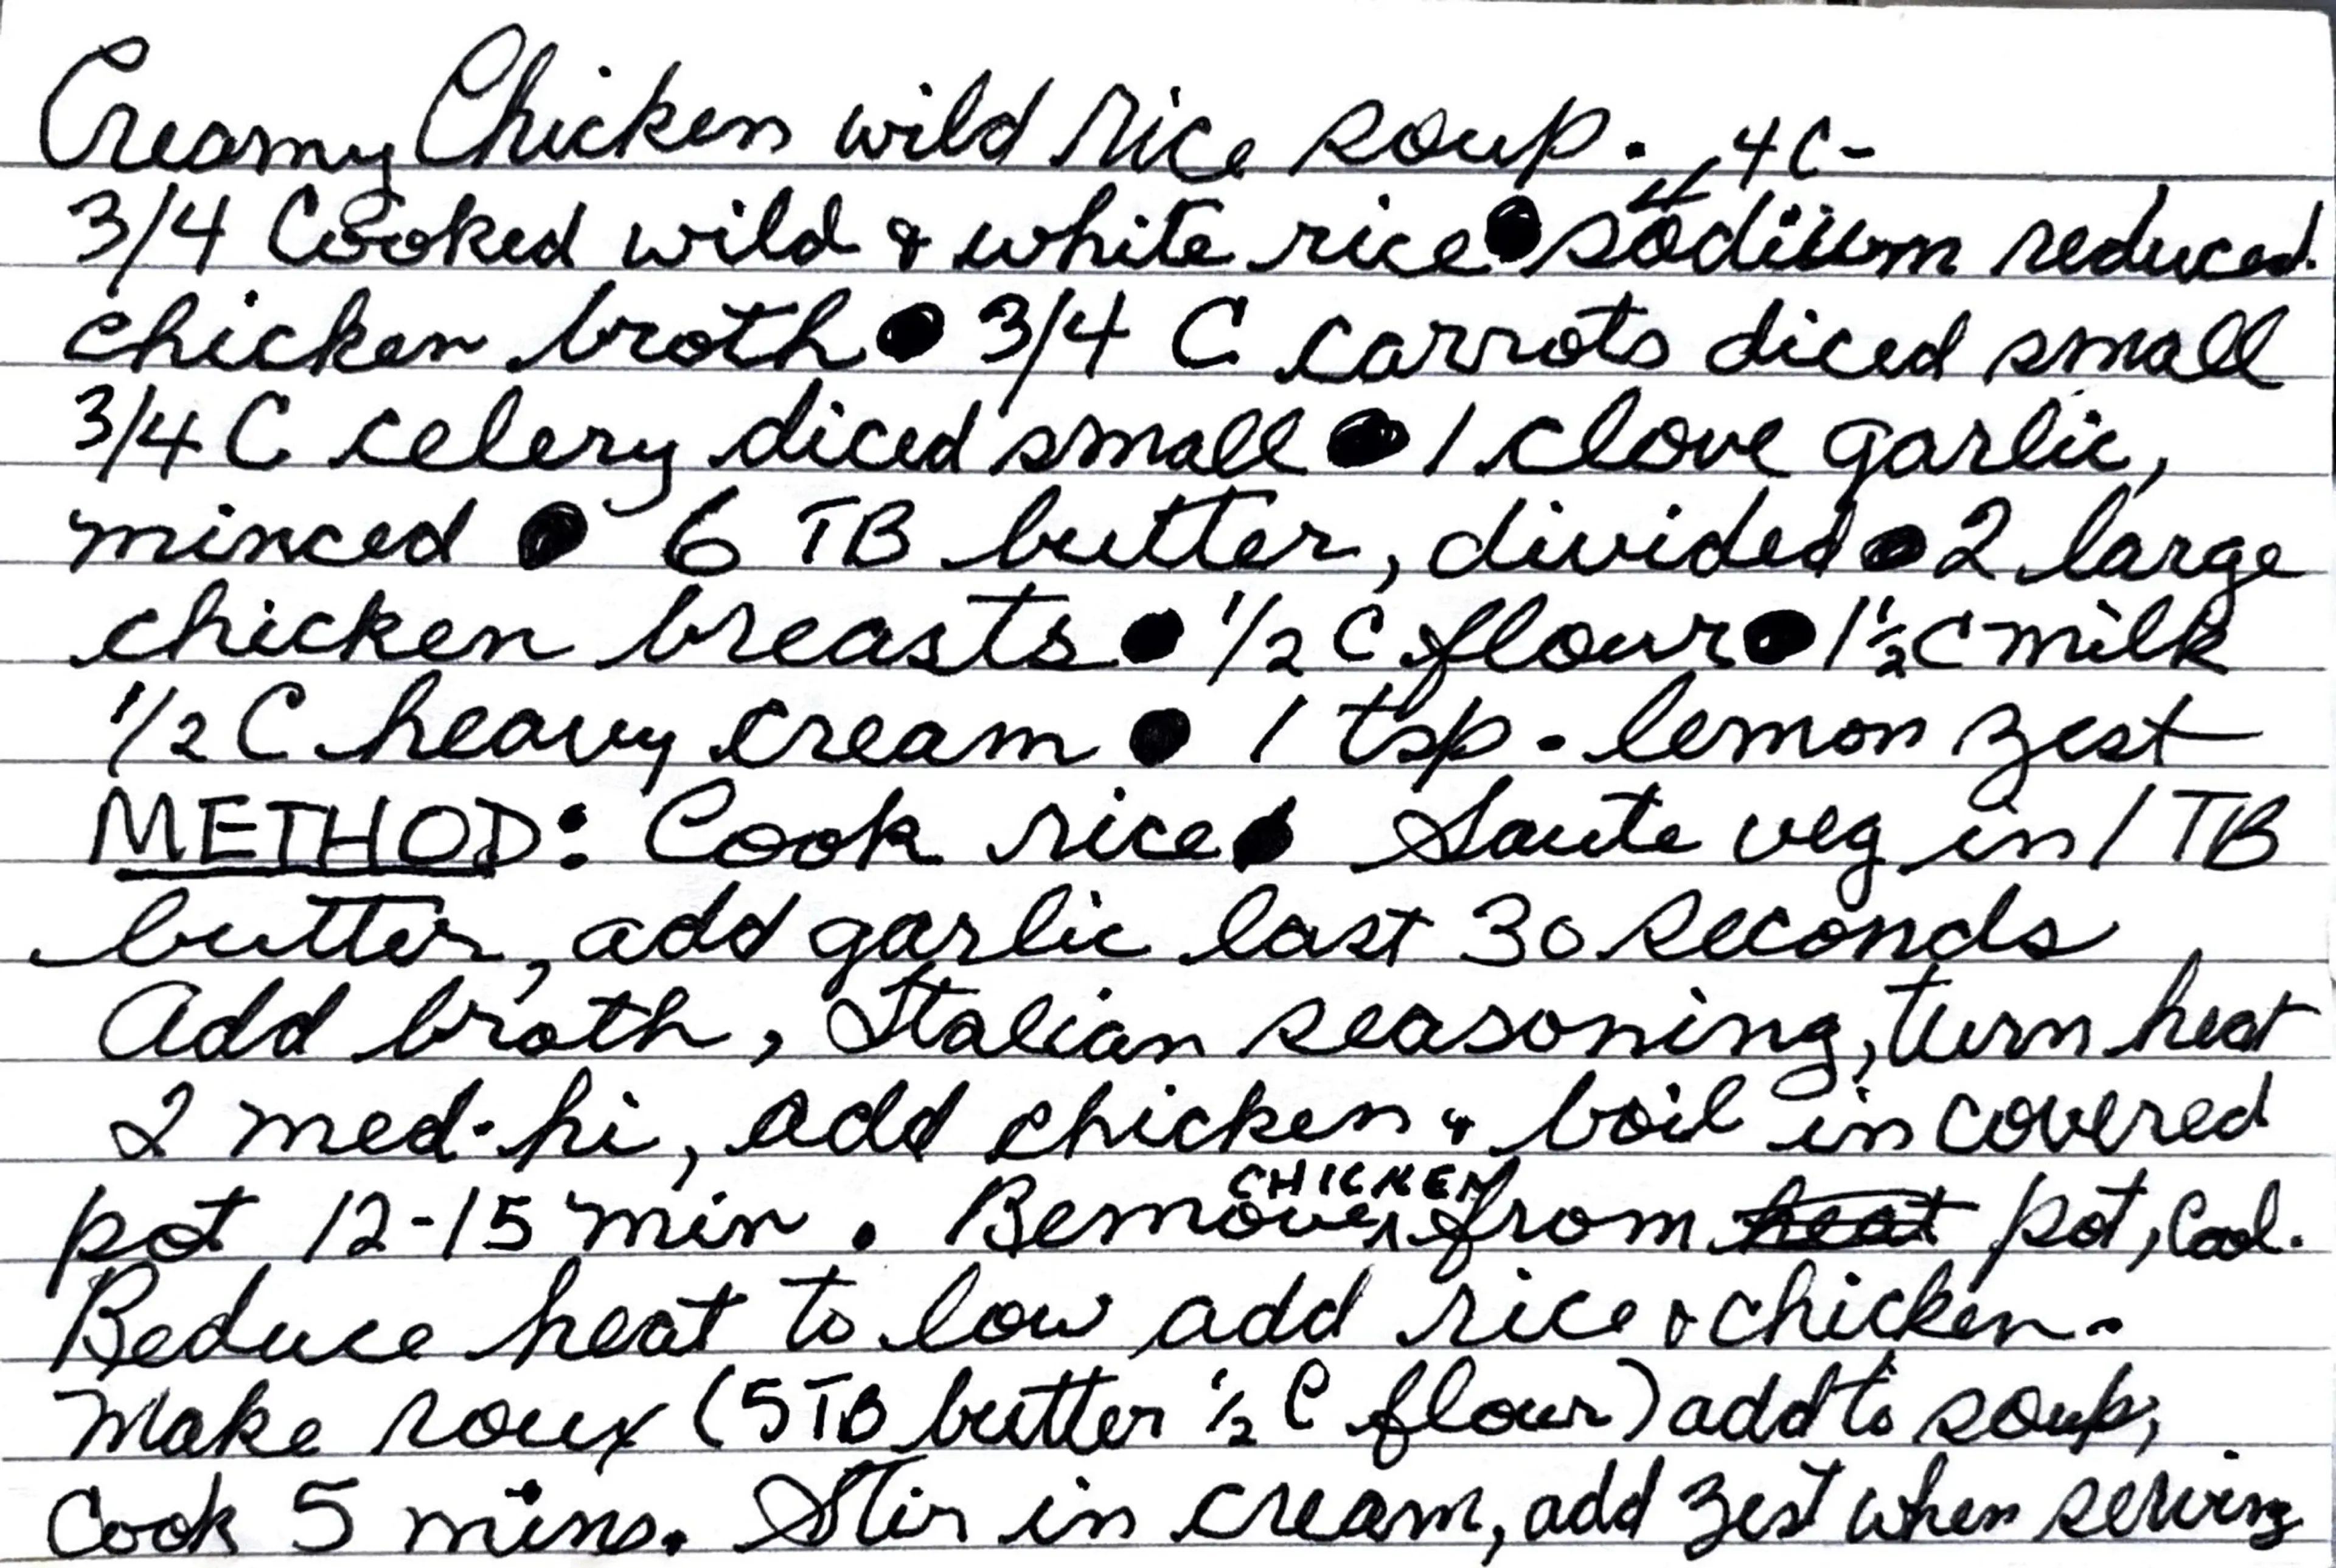 Creamy Chicken wild rice soup. 4C-
3/4 Cooked wild & white rice ● sodium reduced
chicken broth ● 3/4 C carrots diced small
3/4 C celery diced small ● 1 clove garlic,
minced ● 6 TB butter, divided ● 2 large
chicken breasts ● 1/2 C flour ● 1 1/2 C milk
1/2 C heavy cream ● 1 tsp. lemon zest
METHOD: Cook rice ● Saute veg in 1 TB
butter, add garlic last 30 seconds
Add broth, Italian seasoning, turn heat
2 med-hi, add chicken & boil in covered
pot 12-15 min. Remove CHICKEN from heat pot, Cool.
Reduce heat to low add rice & chicken.
Make roux (5 TB butter 1/2 C flour) add to soup,
Cook 5 mins. Stir in cream, add zest when serving